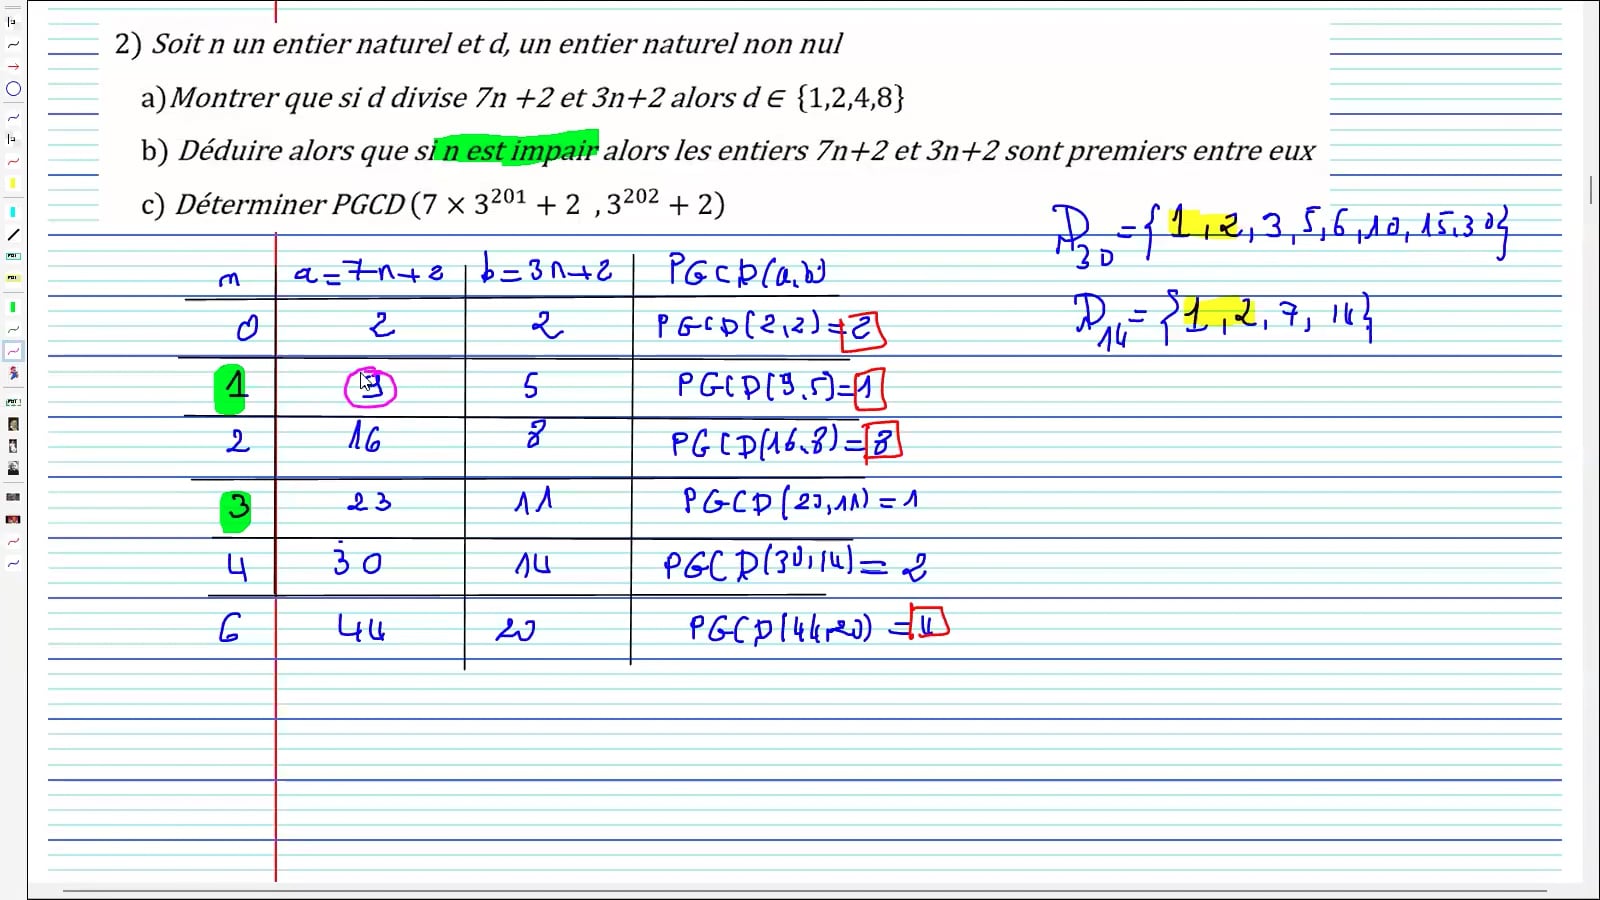 2) Soit n un entier naturel et d, un entier naturel non nul
a)Montrer que si d divise 7n +2 et 3n+2 alors d ∈ {1,2,4,8}
b) Déduire alors que si n est impair alors les entiers 7n+2 et 3n+2 sont premiers entre eux
c) Déterminer PGCD (7 × 3²⁰¹ + 2 , 3²⁰² + 2)
D₃₀ = {1, 2, 3, 5, 6, 10, 15, 30}
D₁₄ = {1, 2, 7, 14}
n a=7n+2 b=3n+2 PGCD(a,b)
0 2 2 PGCD(2,2)=2
1 9 5 PGCD(9,5)=1
2 16 8 PGCD(16,8)=8
3 23 11 PGCD(23,11)=1
4 30 14 PGCD(30,14)=2
6 44 20 PGCD(44,20)=4